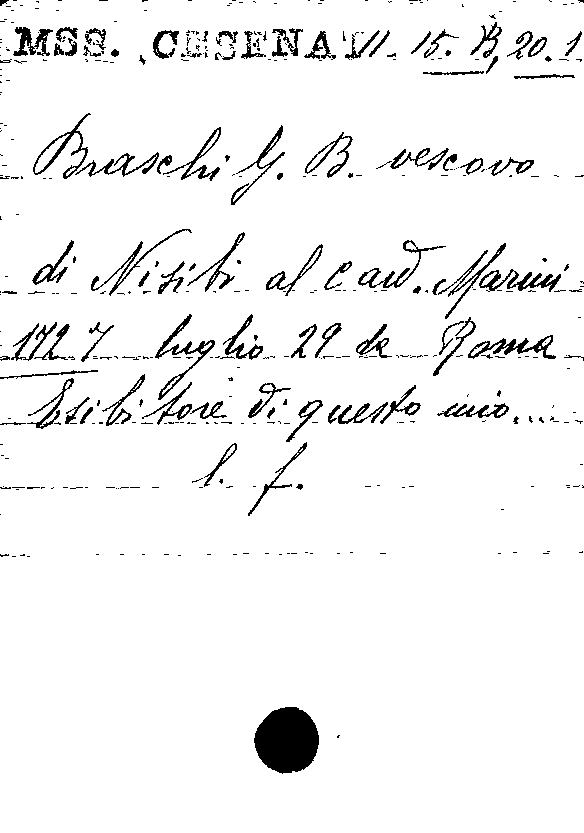 MSS. CESENATI 15. B, 20. 1
Braschi G. B. vescovo
di Nisibi al card. Marini
1727 luglio 29 da Roma
Esibitore di questo mio...
l. f.